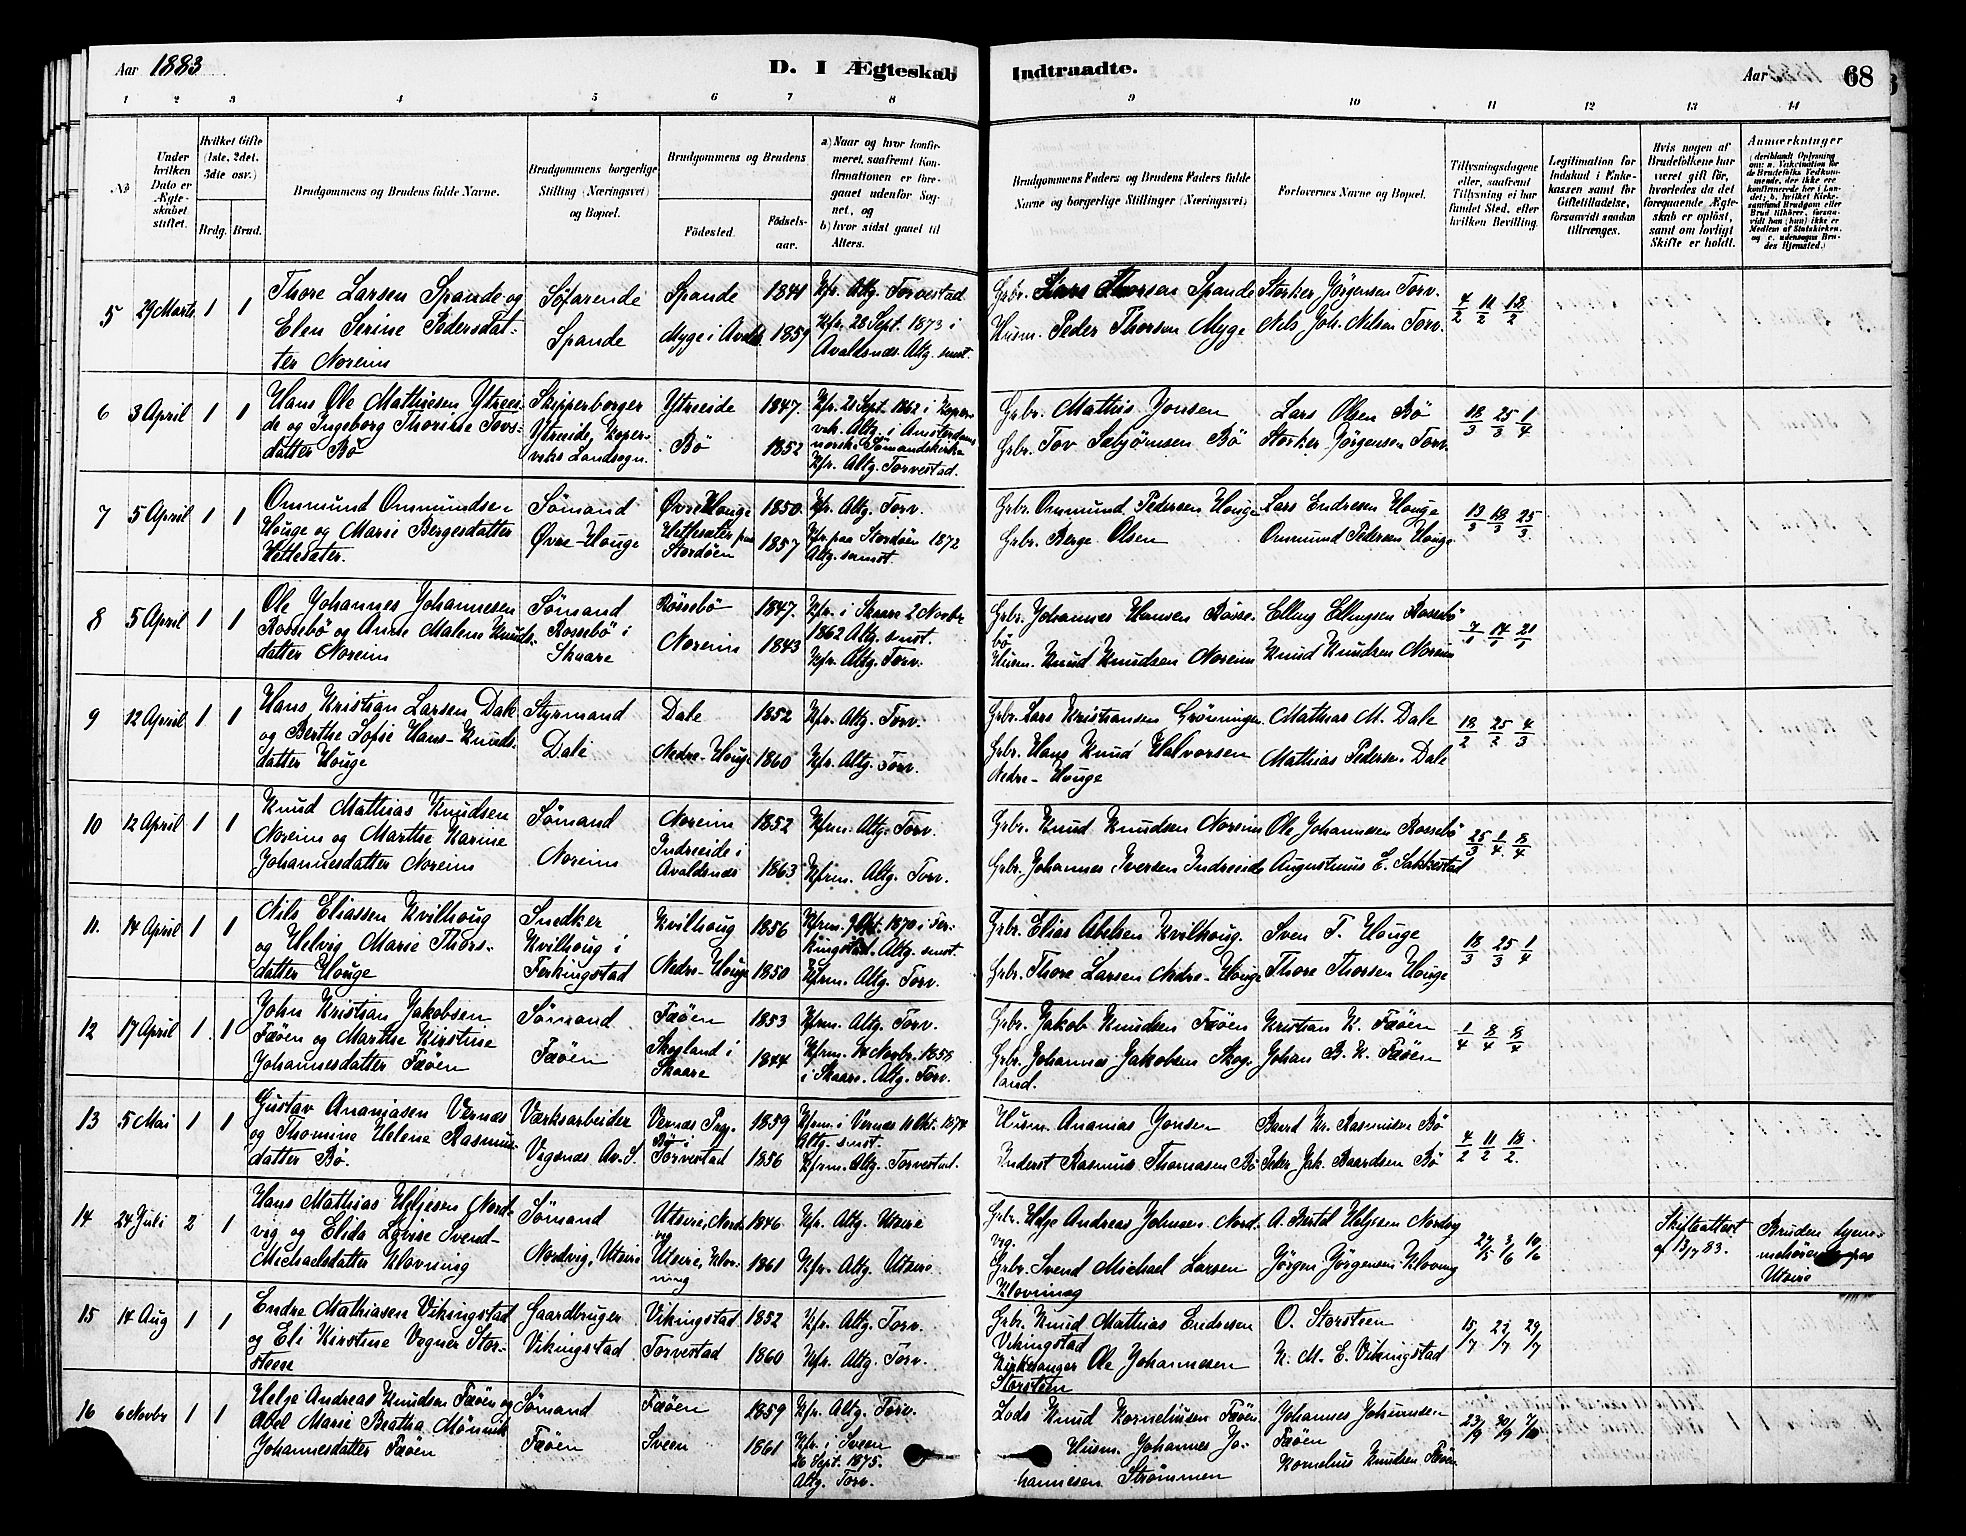 Aar 1883
D. I Ægteskab Indtraadte.
Aar 68
1 2 3 4 5 6 7 8 9 10 11 12 13 14
No
Under hvilken Dato er Ægteskabet stiftet.
Hvilket Gifte (1ste, 2det, 3die osv.)
Brdg. Brud.
Brudgommens og Brudens fulde Navne.
Brudgommens borgerlige Stilling (Næringsvei) og Bopæl.
Brudgommens og Brudens
Fødested. Fødsels-aar.
a) Naar og hvor konfirmeret, saafremt Konfirmationen er foregaaet udenfor Sognet, og
b) hvor sidst gaaet til Alters.
Brudgommens Faders og Brudens Faders fulde Navne og borgerlige Stillinger (Næringsvei)
Forlovernes Navne og Bopæl.
Tillysningsdagene eller, saafremt Tillysning ei har fundet Sted, efter hvilken Bevilling.
Legitimation for Indskud i Enkekassen samt for Giftetilladelse, forsaavidt saadan tiltrænges.
Hvis nogen af Brudefolkene har været gift før, hvorledes da det foregaaende Ægteskab er opløst, samt om lovligt Skifte er holdt.
Anmærkninger
5 29 Marts 1 1
Thore Larsen Spande og
Elen Serine Pedersdat-
ter Noreim
Søfarende
Spande
Spande 1841
Myge i Avalds. 1859
Kfr. Altg. Torvestad
Kfr. 28 Sept. 1873 i
Avaldsnæs. Altg. smst.
Grbr. Lars Thorsen Spande
Husm. Peder Thorsen Myge
Storker Jörgensen Torv.
Nils Joh. Nilsen Torv.
4/2 11/2 18/2
6 3 April 1 1
Hans Ole Mathiesen Ytreei-
de og Ingeborg Thorine Tovs-
datter Bö
Skipperborger
Ytreeide, Koper-
viks Landsogn.
Ytreeide 1847.
Bö 1852
Kfr. 28 Sept. 1862 i Koper-
vik. Altg. i Amsterdams
norske Sömandskirke
Kfr. Altg. Torvestad.
Grbr. Mathis Jonsen
Grbr. Tov Sebjörnsen Bö
Lars Olsen Bö
Storker Jörgensen Torv.
18/3 25/3 1/4
7 5 April 1 1
Ommund Ommundsen
Houge og Marie Bergesdatter
Hettesæter.
Sömand
Övre Houge
Övre Houge 1850.
Hettesæter paa
Stordöen 1857
Kfr. Altg. Torv.
Kfr. paa Stordöen 1872
Altg. samst.
Grbr. Ommund Pedersen Houge
Grbr. Berge Olsen
Lars Endresen Houge
Ommund Pedersen Houge
13/3 18/3 25/3
8 5 April 1 1
Ole Johannes Johannesen
Rossebö og Anne Malene Knuds-
datter Noreim
Sömand
Rossebö i
Skaare
Rossebö 1847.
Noreim 1843
Kfr. i Skaare 2 Novbr
1862 Altg. smst.
Kfr. Altg. Torv.
Grbr. Johannes Hansen Rosse-
bö
Husm. Knud Knudsen Noreim
Elling Ellingsen Rossebö
Knud Knudsen Noreim
9 12 April 1 1
Hans Kristian Larsen Dale
og Berthe Sofie Hans-Knuds-
datter Houge
Styrmand
Dale
Dale 1852
Nedre-Houge 1860
Kfr. Altg. Torv.
Kfr. Altg. Torv.
Grbr. Lars Kristiansen Grönningen
Grbr. Hans Knud Halvorsen
Nedre-Houge
Mathias M. Dale
Mathias Pedersen Dale
18/2 25/2 4/3
10 12 April 1 1
Knud Mathias Knudsen
Noreim og Marthe Karine
Johannesdatter Noreim
Sömand
Noreim
Noreim 1852
Indreeide i
Avaldsnæs 1863
Kfrm. Altg. Torv.
Kfrm. Altg. Torv.
Grbr. Knud Knudsen Noreim
Grbr. Johannes Iversen Indreeide
Ole Johannesen Rossebö
Augustinus E. Sakkestad
25/3 1/4 8/4
11. 14 April 1 1
Nils Eliassen Kvilhoug
og Helvig Marie Thors-
datter Houge
Snedker
Kvilhoug i
Ferkingstad
Kvilhoug 1856
Nedre-Houge 1850
Kfrm. 9 Okt. 1870 i Fer-
kingstad. Altg. smst.
Kfrm. Altg. Torv.
Grbr. Elias Abelsen Kvilhoug.
Grbr. Thore Larsen Nedre-Houge
Sven T. Houge
Thore Thorsen Houge
18/3 25/3 1/4
12 17 April 1 1
John Kristian Jakobsen
Fæöen og Marthe Kirstine
Johannesdatter Fæöen
Sömand
Fæöen
Fæöen 1853
Skogland i
Skaare 1844
Kfrm. Altg. Torv.
Kfrm. 14 Novbr. 1858
i Skaare. Altg. Torv.
Grbr. Jakob Knudsen Fæöen
Grbr. Johannes Jakobsen Skog-
land.
Kristian K. Fæöen
Johan B. K. Fæöen
1/4 8/4 8/4
13 5 Mai 1 1
Gustav Ananiasen Vernæs
og Thomine Helene Rasmus-
datter Bö.
Værksarbeider
Vigsnæs Av. S.
Vernæs Pgj. 1859
Bö i
Torvestad 1856
Kfrm. i Vernæs 11 Okt. 1874
Altg. smst.
Kfrm. Altg. Torvestad.
Husm. Ananias Jonsen
Inderst Rasmus Thomasen Bö
Baard Kr. Rasmussen Bö
Peder Joh. Baardsen Bö
4/2 11/2 18/2
14 24 Juli 2 1
Hans Mathias Helgesen Nord-
vig og Elida Lovise Svend-
Michaelsdatter Klovning
Sömand
Nordvig, Utsire
Utsire, Nord- 1846
vig
Utsire, Klov- 1861
ning
Kfr. Altg. Utsire
Kfr. Altg. Utsire
Grbr. Helge Andreas Johnsen Nord-
vig.
Grbr. Svend Michael Larsen
Klovning
A. Bertel Helgesen Nordvig
Jörgen Jörgensen Klovning
27/5 3/6 10/6
Skifteattest
af 13/7 83.
Bruden hjem-
mehörende paa
Utsire
15 14 Aug 1 1
Endre Mathiasen Vikingstad
og Eli Kirstine Vogner Stor-
steen
Gaardbruger
Vikingstad
Vikingstad 1852
Torvestad 1860
Kfr. Altg. Torv.
Kfr. Altg. Torv.
Grbr. Knud Mathias Endresen
Vikingstad
Kirkesanger Ole Johannesen
Storsteen
O. Storsteen
K. M. E. Vikingstad
15/7 22/7 29/7
16 6 Novbr 1 1
Helge Andreas Knudsen Fæöen og
Abel Marie Beatha
Johannesdatter Fæöen
Sömand
Fæöen
Fæöen 1859
Sveen 1861
Kfr. Altg. Torv.
Kfr. i Sveen
26 Sept. 1875.
Altg. Torv.
Lods Knud Korneliusen Fæöen
Husm. Johannes Jo-
hannesen Strömmen
Johannes Johannesen
Fæöen
Kornelius Knudsen Fæöen
23/9 30/9 7/10